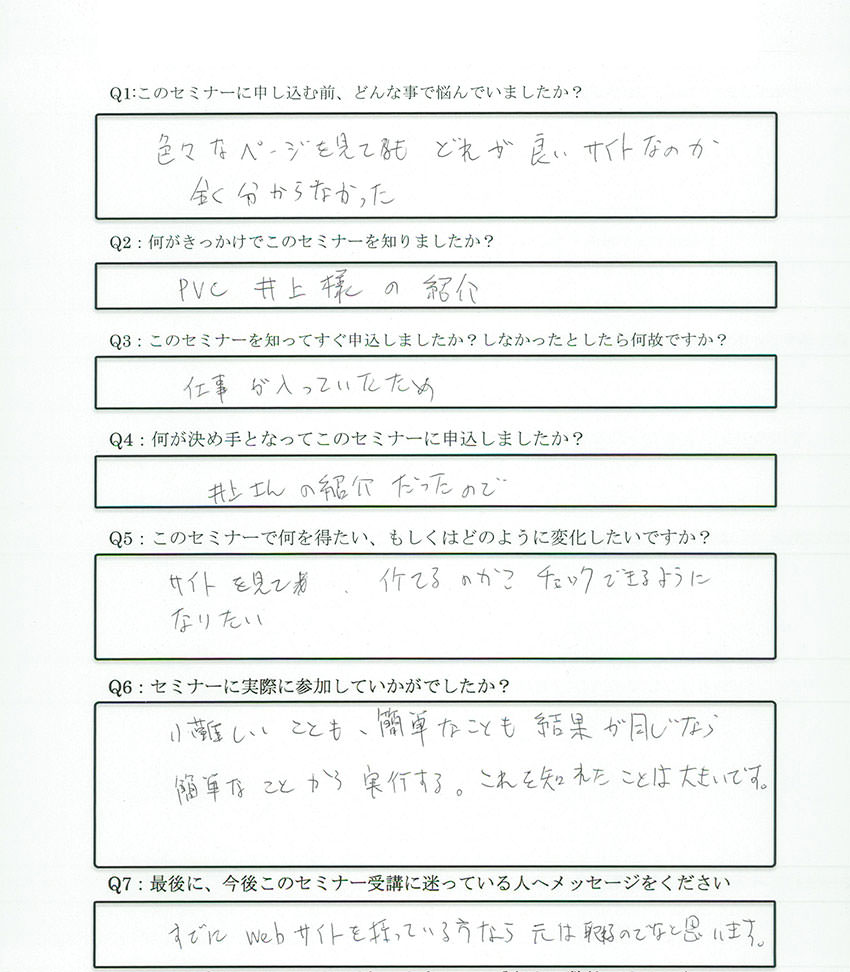 Q1:このセミナーに申し込む前、どんな事で悩んでいましたか?
色々なページを見ても どれが 良い サイトなのか
全く分からなかった
Q2:何がきっかけでこのセミナーを知りましたか?
PVC 井上様の紹介
Q3:このセミナーを知ってすぐ申込しましたか?しなかったとしたら何故ですか?
仕事が入っていたため
Q4:何が決め手となってこのセミナーに申込しましたか?
井上さんの紹介だったので
Q5:このセミナーで何を得たい、もしくはどのように変化したいですか?
サイトを見て、イケてるのかをチェックできるように
なりたい
Q6:セミナーに実際に参加していかがでしたか?
小難しいことも、簡単なことも結果が同じなら
簡単なことから実行する。これを知れたことは大きいです。
Q7:最後に、今後このセミナー受講に迷っている人へメッセージをください
すでにwebサイトを持っている方なら元は取れるのでなと思います。